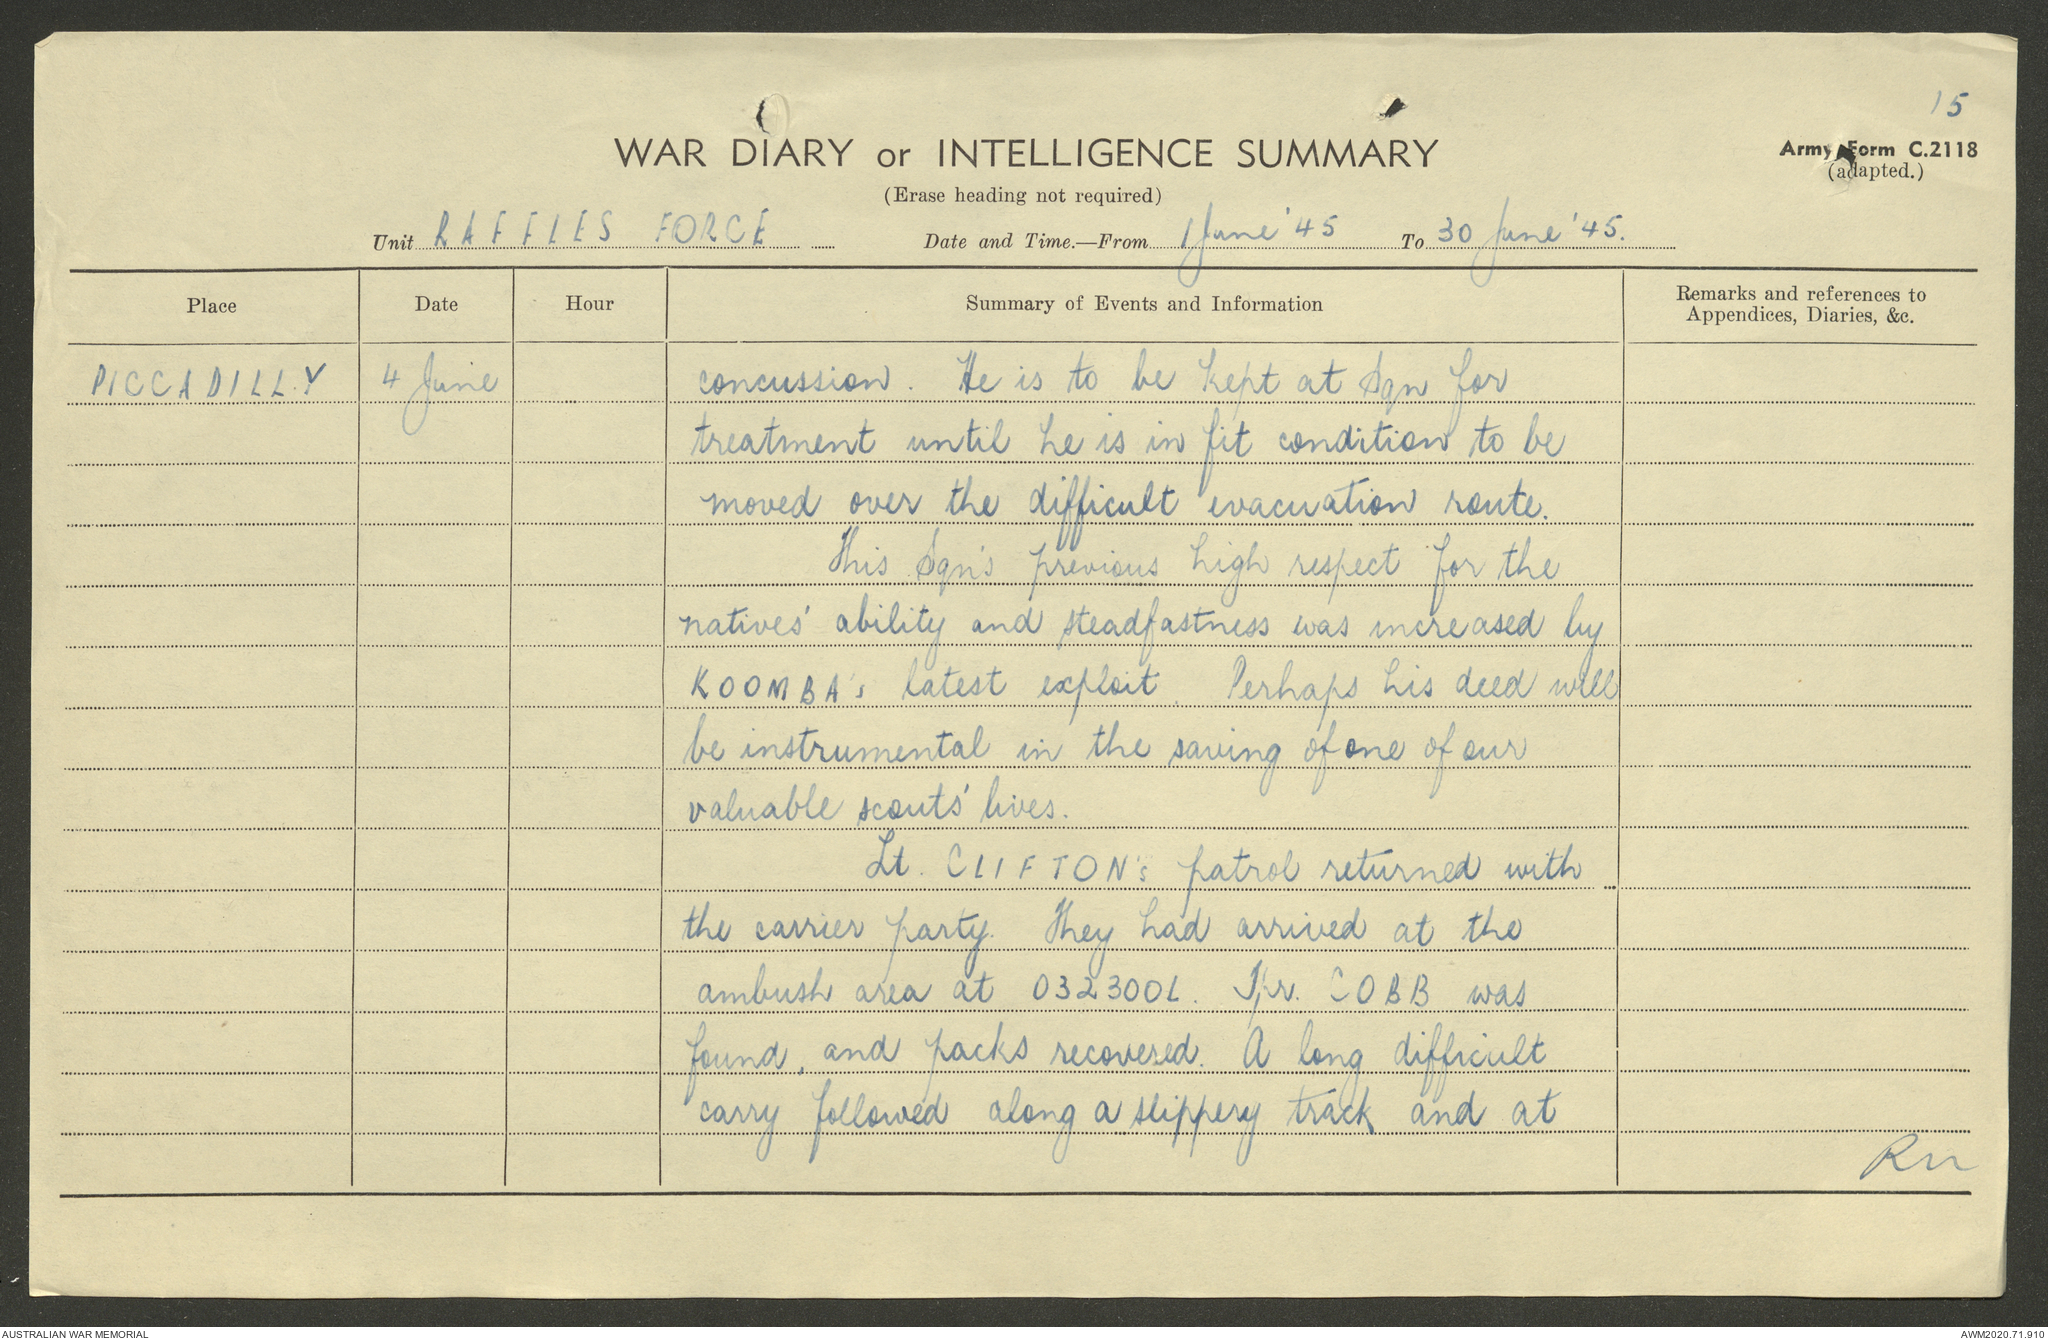 15
WAR DIARY or INTELLIGENCE SUMMARY
Army Form C.2118
(adapted.)
(Erase heading not required)
Unit RAFFLES FORCE Date and Time.—From 1 June '45 To 30 June '45.
Place Date Hour Summary of Events and Information Remarks and references to
Appendices, Diaries, &c.
PICCADILLY 4 June concussion. He is to be kept at Sqn for
treatment until he is in fit condition to be
moved over the difficult evacuation route.
This Sqn's previous high respect for the
natives' ability and steadfastness was increased by
KOOMBA's latest exploit. Perhaps his deed will
be instrumental in the saving of one of our
valuable scouts' lives.
Lt. CLIFTON's patrol returned with
the carrier party. They had arrived at the
ambush area at 032300L. Tpr. COBB was
found, and packs recovered. A long difficult
carry followed along a slippery track and at
AUSTRALIAN WAR MEMORIAL
AWM2020.71.910